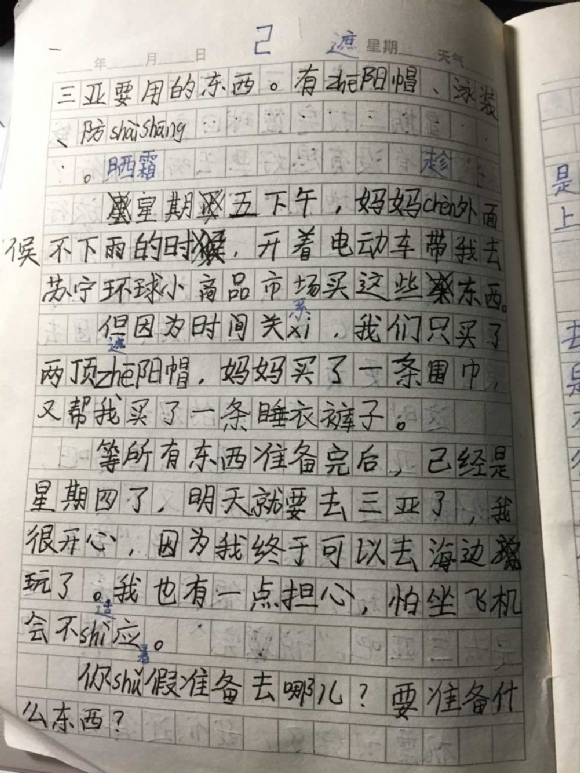 年 月 日 2 遮 星期 天气
三亚要用的东西。有zhē阳帽、泳装
、防shàishāng
。晒霜 趁
星期五下午，妈妈chèn外面
候不下雨的时，开着电动车带我去
苏宁环球小商品市场买这些东西。
系
但因为时间关xi，我们只买了
遮
两顶zhē阳帽，妈妈买了一条围巾，
又帮我买了一条睡衣裤子。
等所有东西准备完后，已经是
星期四了，明天就要去三亚了，我
很开心，因为我终于可以去海边
玩了。我也有一点担心，怕坐飞机
适
会不shì应。
暑
你shǔ假准备去哪儿？要准备什
么东西？
是
上